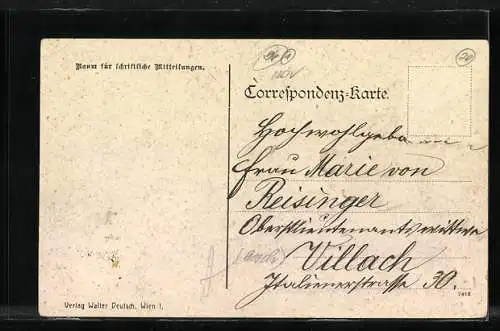 Raum für schriftliche Mitteilungen.
Correspondenz-Karte.
Hochwohlgeboren
Frau Marie von
Reisinger
Oberstlieutenantswittwe
Villach
Italienerstrasse 30.
Verlag Walter Deutsch, Wien I.